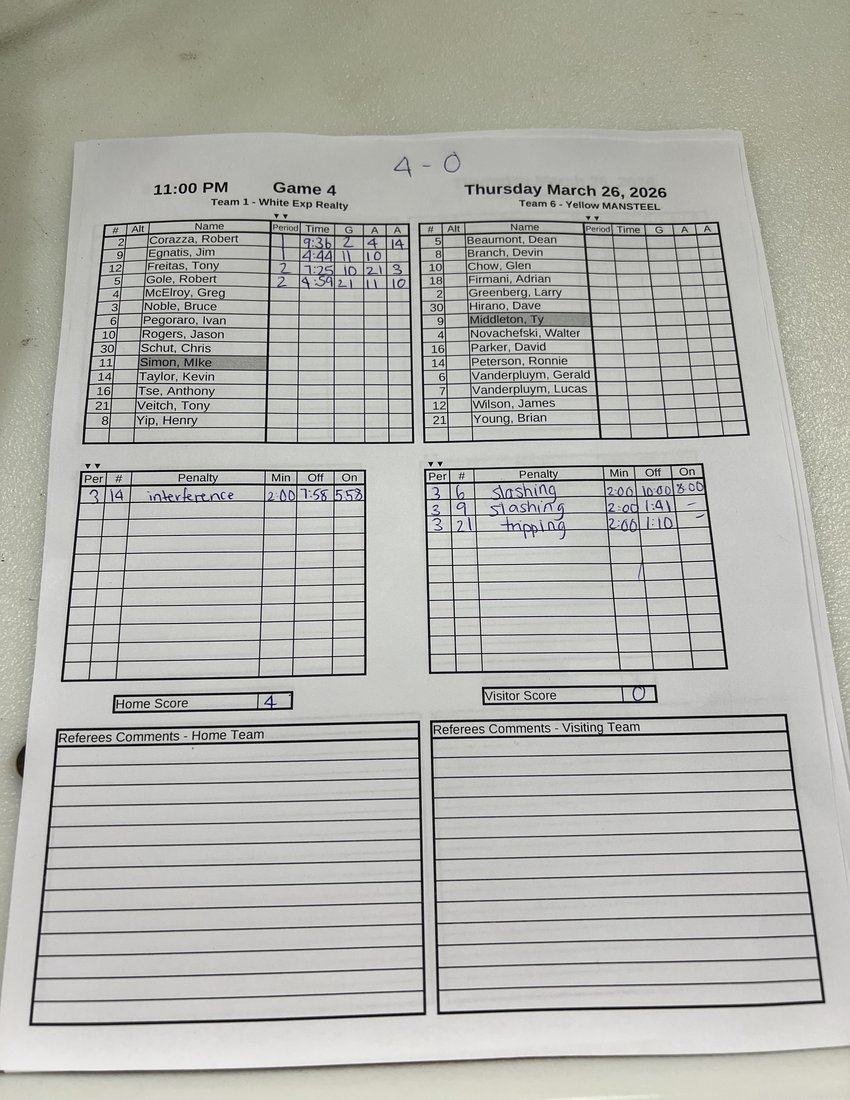 4 - 0
11:00 PM Game 4 Thursday March 26, 2026
Team 1 - White Exp Realty Team 6 - Yellow MANSTEEL
# Alt Name Period Time G A A # Alt Name Period Time G A A
2 Corazza, Robert 1 9:36 2 4 14 5 Beaumont, Dean
9 Egnatis, Jim 1 4:44 11 10 8 Branch, Devin
12 Freitas, Tony 2 7:25 10 21 3 10 Chow, Glen
5 Gole, Robert 2 4:59 21 11 10 18 Firmani, Adrian
4 McElroy, Greg 2 Greenberg, Larry
3 Noble, Bruce 30 Hirano, Dave
6 Pegoraro, Ivan 9 Middleton, Ty
10 Rogers, Jason 4 Novachefski, Walter
30 Schut, Chris 16 Parker, David
11 Simon, MIke 14 Peterson, Ronnie
14 Taylor, Kevin 6 Vanderpluym, Gerald
16 Tse, Anthony 7 Vanderpluym, Lucas
21 Veitch, Tony 12 Wilson, James
8 Yip, Henry 21 Young, Brian
Per # Penalty Min Off On Per # Penalty Min Off On
3 14 interference 2:00 7:58 5:58 3 6 slashing 2:00 10:00 8:00
3 9 slashing 2:00 1:41 -
3 21 tripping 2:00 1:10 -
Home Score 4 Visitor Score 0
Referees Comments - Home Team Referees Comments - Visiting Team